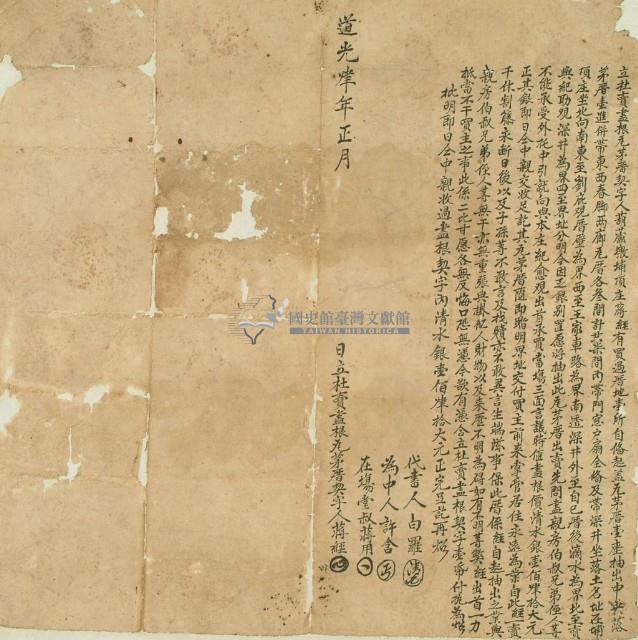 立杜賣盡根瓦茅厝契字人葫蘆墩埔頂庄蔣經有買過厝地壹所自俻起蓋瓦茅厝壹座抽出中央落
茅厝壹進併帶東西春脚西廊瓦厝各叁間計共柒間內帶門窓户扇全俻及帶深井坐落土名址在埔
頂庄坐北向南東至劉庇觀厝壁為界西至王家車路為界南透深井外至自己厝後滴水為界北至賣
與紀助觀深井為界四至界址分明今因乏銀別置愿將抽出此瓦茅厝出賣先問盡親房伯叔兄弟侄人等
不能承受外托中引就向與本庄紀愈觀出首承買當塲三面言議時值盡根價清水銀壹佰肆拾大元
正其銀即日仝中親交收足訖其瓦茅厝隨即踏明界址交付買主前來掌管居住永遠為業自此經一賣
千休割籐永斷日後以及子孫等不敢言及找贖亦不敢異言生端滋事保此厝係經自起抽出之業與
親房伯叔兄弟侄人等無干亦無重張典掛他人財物以及來歷不明為碍如有不明等獘經出首一力
抵當不干買主之事此係二比甘愿各無反悔口恐無憑今欲有憑合立杜賣盡根契字壹帋付执為炤
批明即日仝中親收過盡根契字內清水銀壹佰肆拾大元正完足訖再炤
代書人白羅
為中人許含
在塲堂叔蔣用
道光肆年正月 日立杜賣盡根瓦茅厝契字人蔣經
國史館臺灣文獻館
TAIWAN HISTORICA